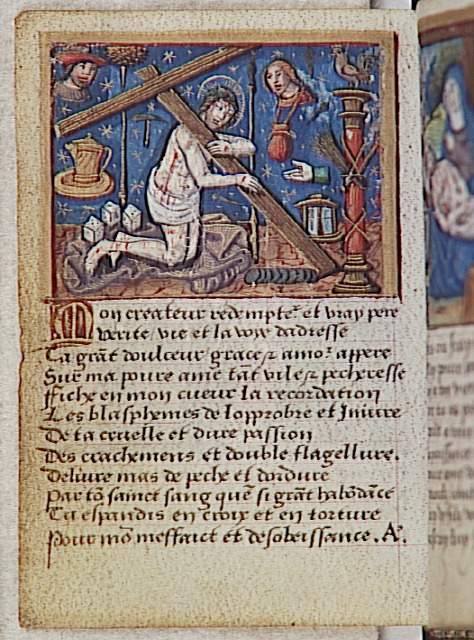 Mon createur redempteʳ et vray pere
Verite / vie et la voye dadresse
Ta grāt doulceur grace / et amoʳ appere
Sur ma poure ame tāt vile / et pecheresse
Fiche en mon cueur la recordation
Les blasphemes de lopprobre et Iniure
De ta cruelle et dure passion
Des crachemens et double flagellure.
Deliure mas de peche et dordure
Par tō sainct sang que si grāt habōdāce
Tu espandis en croix et en torture
Pour mō meffaict et desobeissance . A.